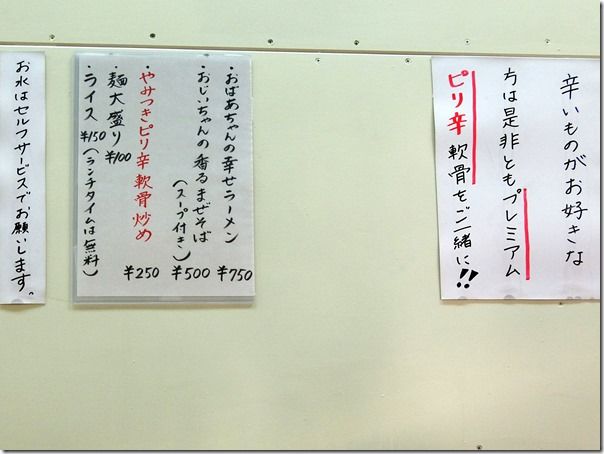 辛いものがお好きな
方は是非ともプレミアム
ピリ辛軟骨をご一緒に!!
・おばあちゃんの幸せラーメン ¥750
・おじいちゃんの香るまぜそば ¥500
(スープ付き)
・やみつきピリ辛軟骨炒め ¥250
・麺大盛り ¥100
・ライス ¥150 (ランチタイムは無料)
お水はセルフサービスでお願いします。